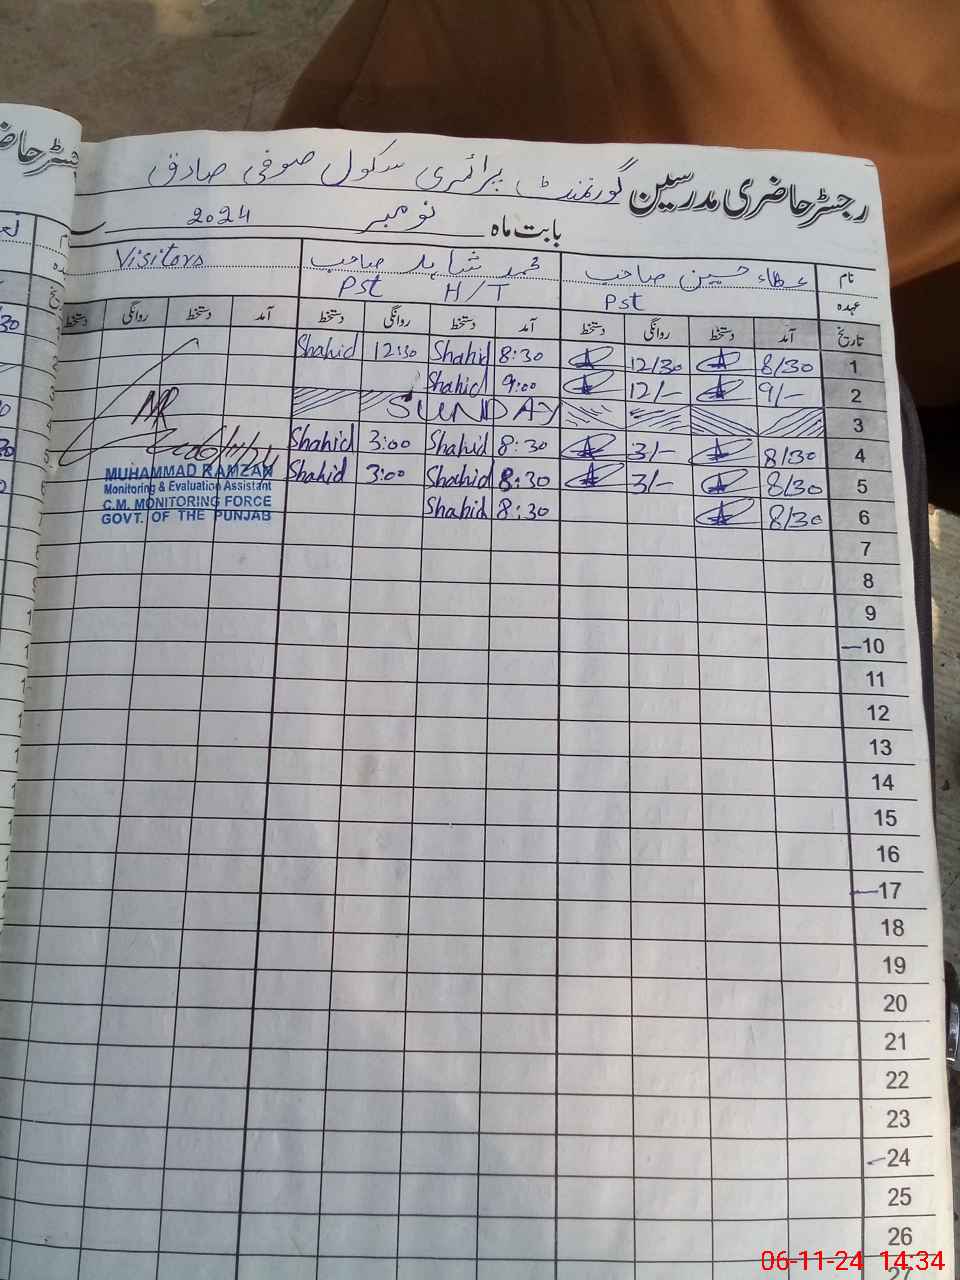 رجسٹر حاضری مدرسین گورنمنٹ پرائمری سکول صوفی صادق
بابت ماہ نومبر 2024
نام عطاء حسین صاحب محمد شاہد صاحب Visitors
عہدہ Pst Pst H/T
تاریخ آمد دستخط روانگی دستخط آمد دستخط روانگی دستخط آمد دستخط روانگی دستخط
1 8/30 12/30 8:30 Shahid 12:30 Shahid
2 9/- 12/- 9:00 Shahid
3 SUNDAY
4 8/30 3/- 8:30 Shahid 3:00 Shahid
5 8/30 3/- 8:30 Shahid 3:00 Shahid
6 8/30 8:30 Shahid
MUHAMMAD RAMZAN
Monitoring & Evaluation Assistant
C.M. MONITORING FORCE
GOVT. OF THE PUNJAB
7
8
9
10
11
12
13
14
15
16
17
18
19
20
21
22
23
24
25
26
27
06-11-24 14:34